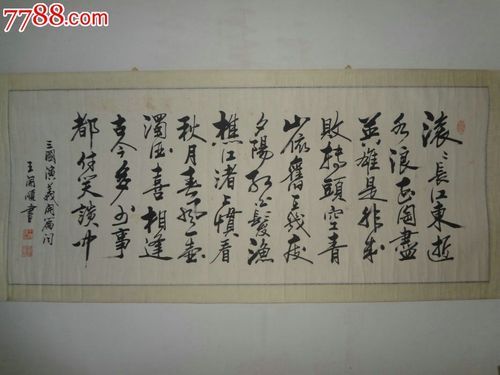 7788.com
滚〻長江東逝
水浪花淘盡
英雄是非成
敗轉頭空青
山依舊在幾度
夕陽紅白髮漁
樵江渚上慣看
秋月春風一壺
濁酒喜相逢
古今多少事
都付笑談中
三國演義開篇词
王 書